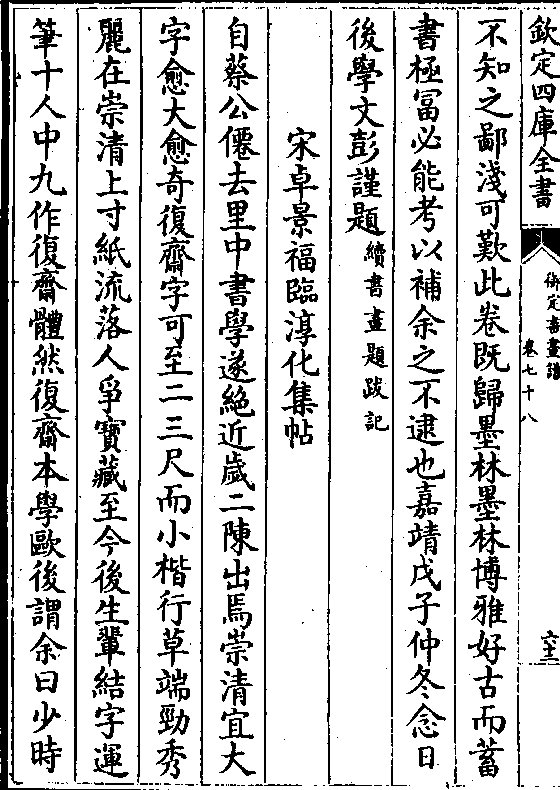 欽定四庫全書
佩定書畫譜
卷七十八
六十三
不知之鄙淺可歎此卷既歸墨林墨林博雅好古而蓄
書極富必能考以補余之不逮也嘉靖戊子仲冬念日
後學文彭謹題續書畫題跋記
宋卓景福臨淳化集帖
自蔡公僊去里中書學遂絶近嵗二陳出焉崇清宜大
字愈大愈竒復齋字可至二三尺而小楷行草端勁秀
麗在崇清上寸紙流落人爭寳藏至今後生輩結字運
筆十人中九作復齋體然復齋本學歐後謂余曰少時